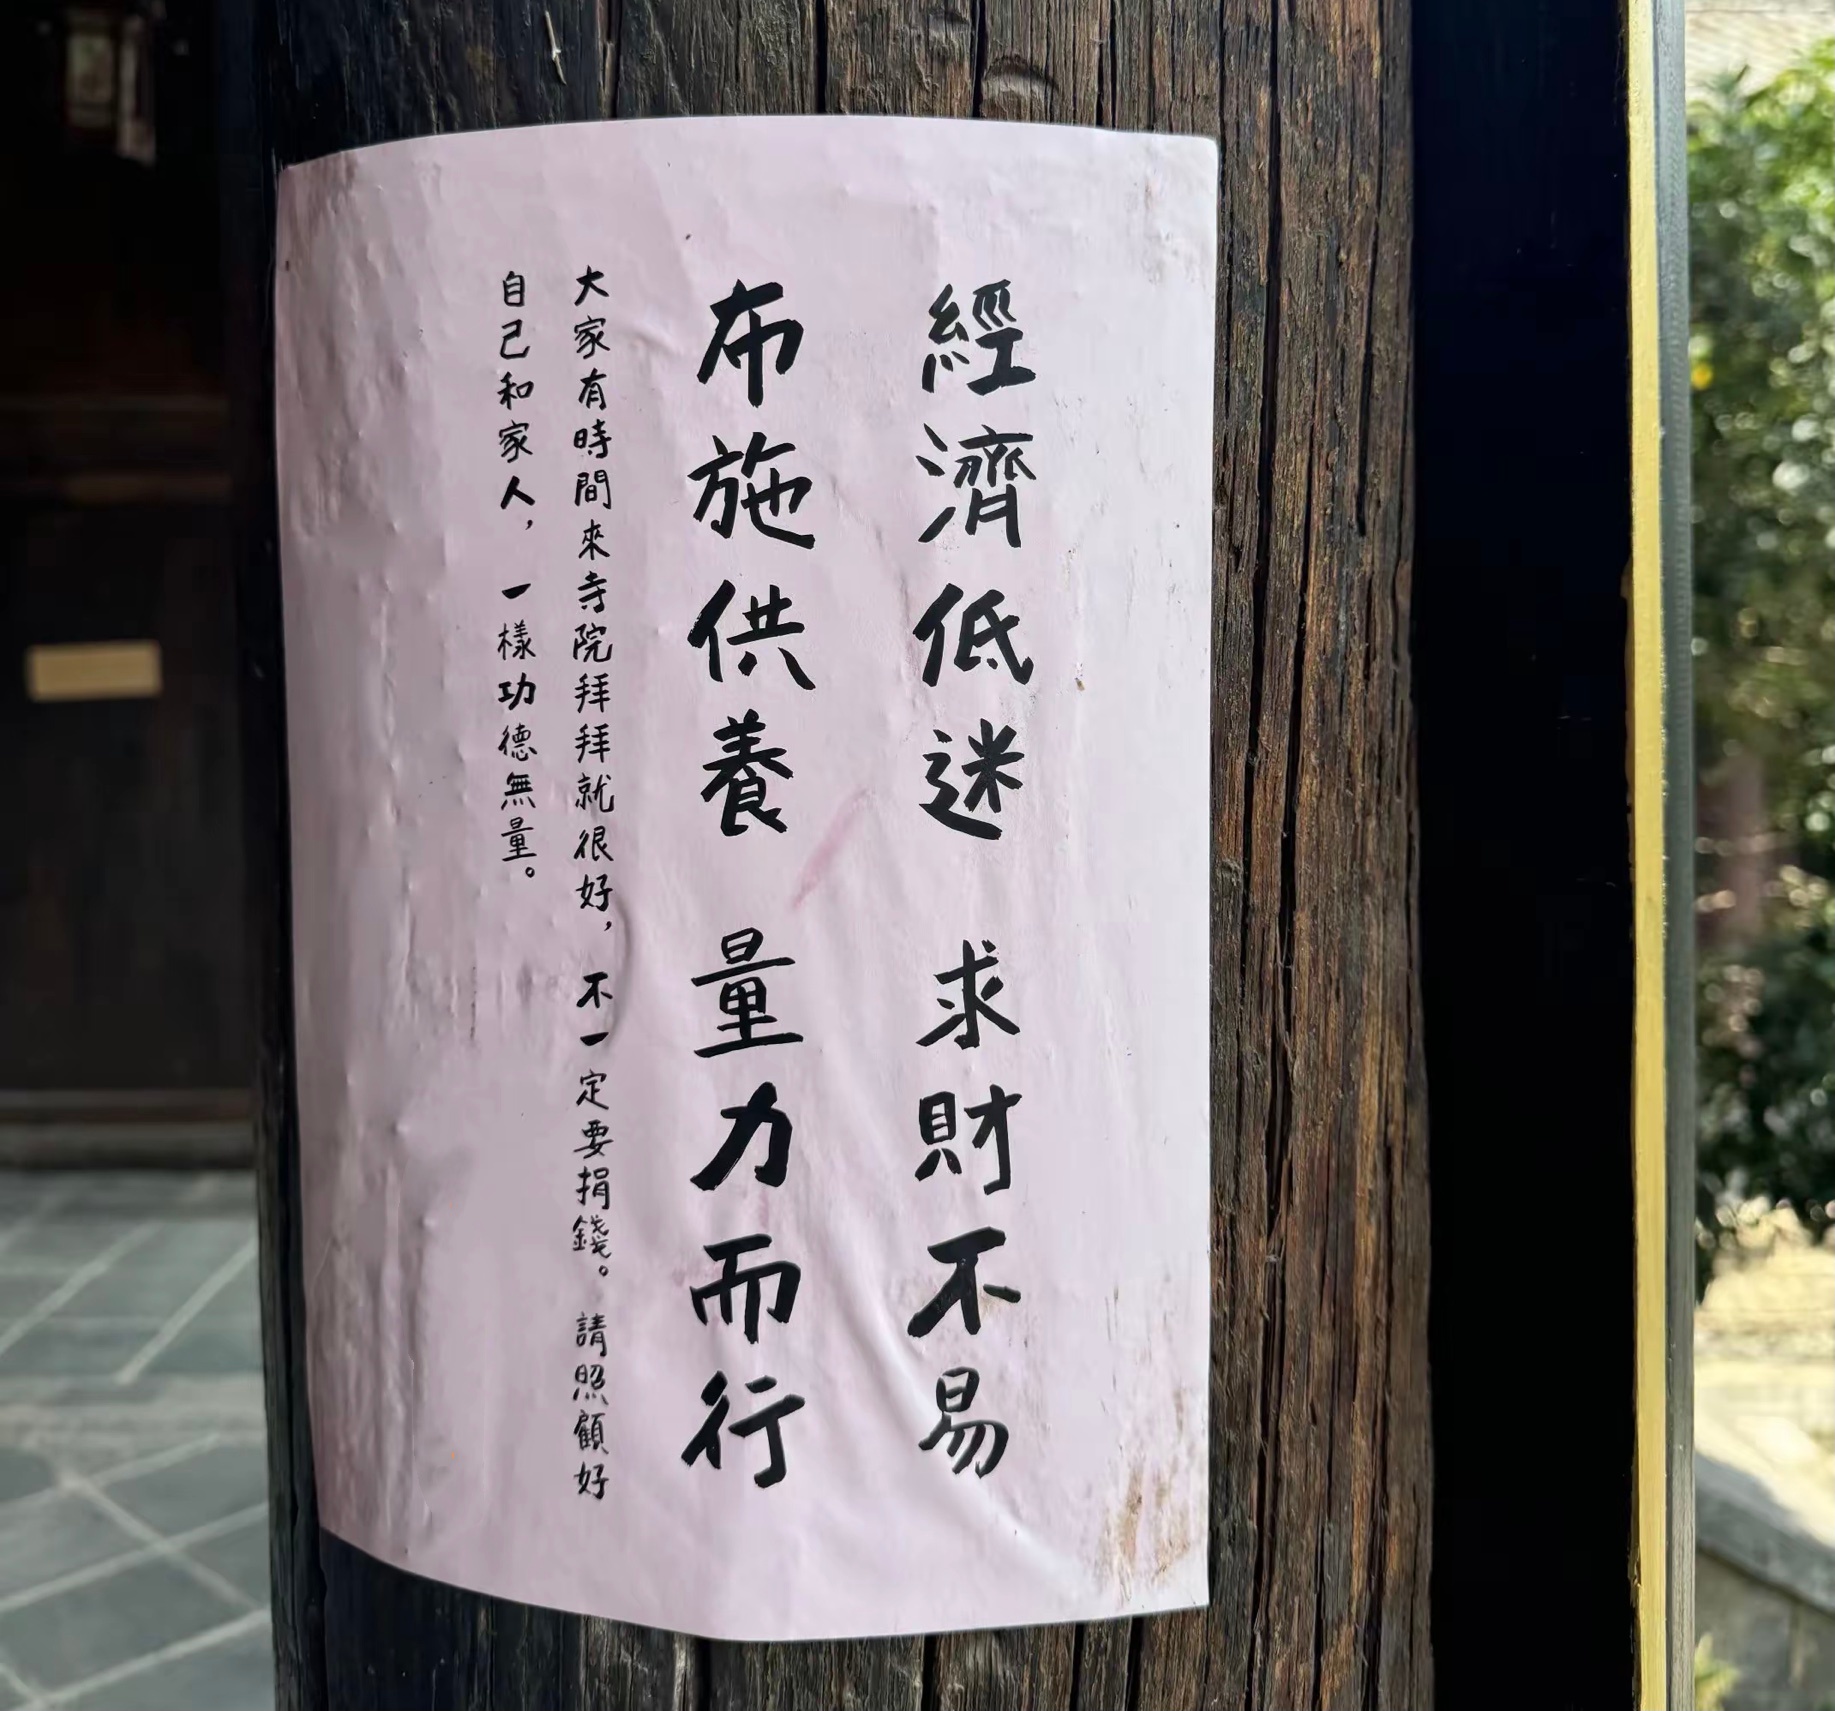 經濟低迷 求財不易
布施供養 量力而行
大家有時間來寺院拜拜就很好，不一定要捐錢。請照顧好
自己和家人，一樣功德無量。